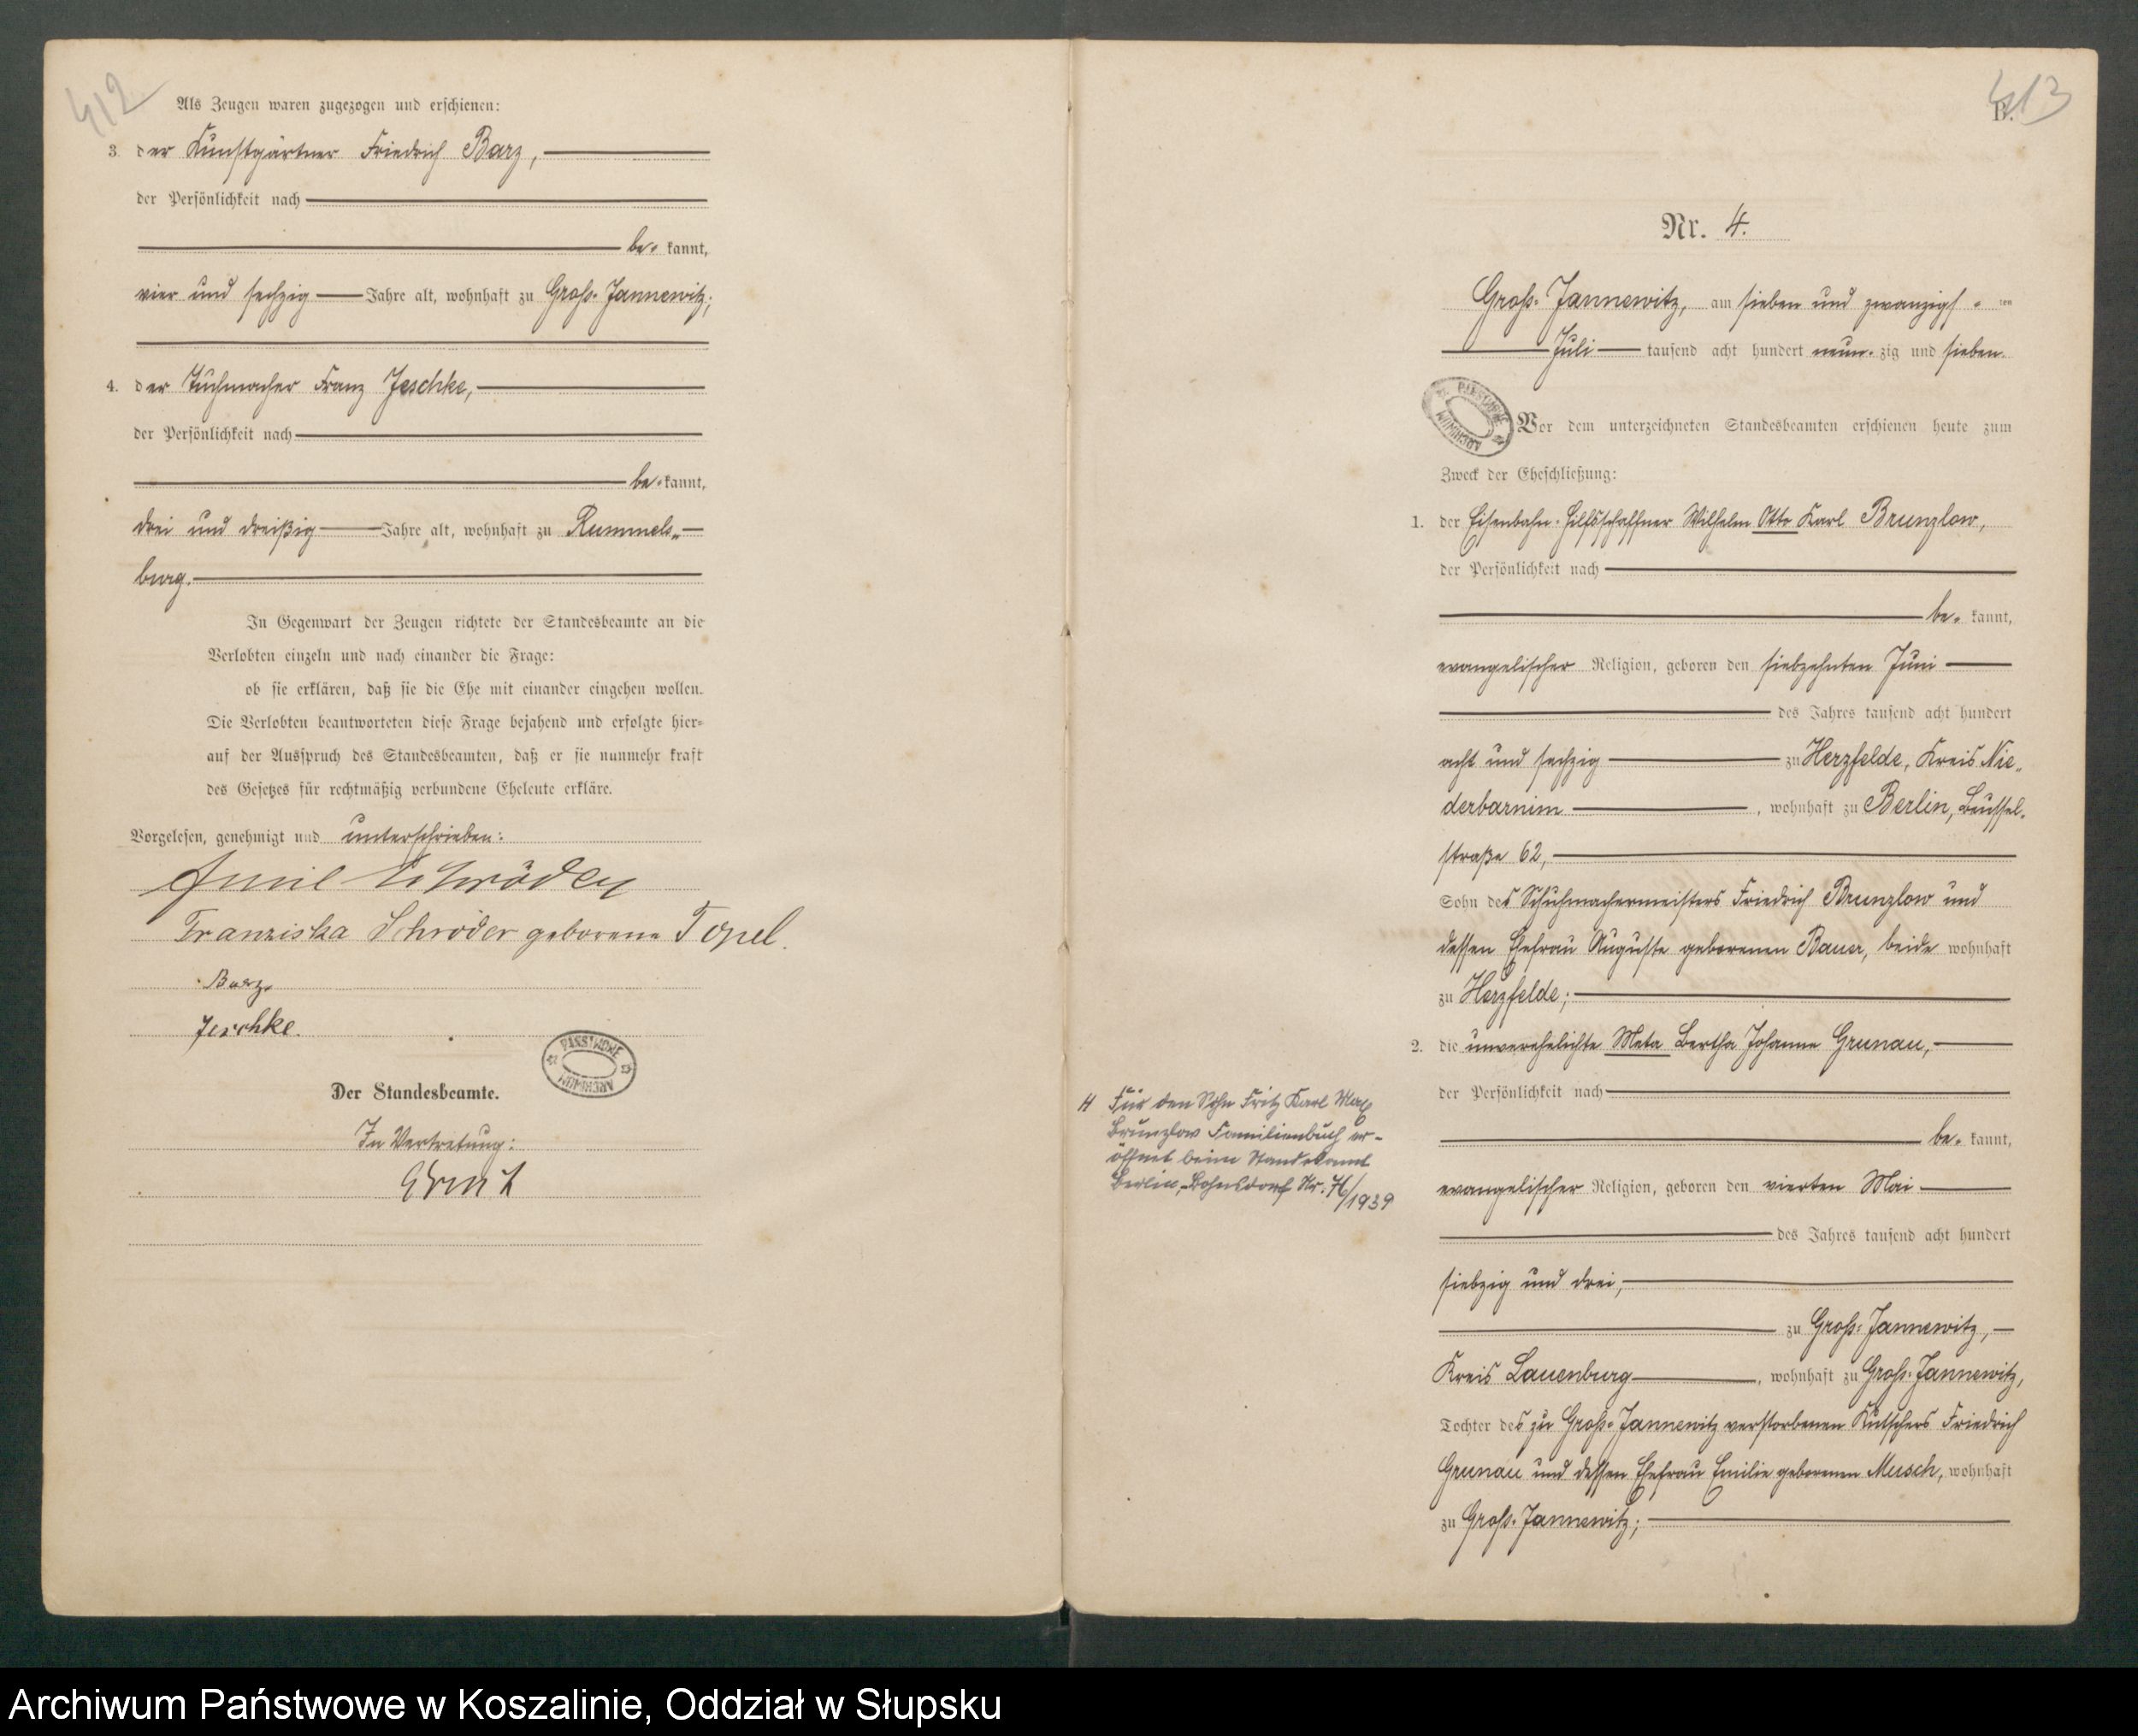 412
Als Zeugen waren zugezogen und erschienen:
3. der Kunstgärtner Friedrich Barz,
der Persönlichkeit nach
be- kannt,
vier und sechzig Jahre alt, wohnhaft zu Groß-Jannewitz;
4. der Tuchmacher Franz Jeschke,
der Persönlichkeit nach
be- kannt,
drei und dreißig Jahre alt, wohnhaft zu Rummels-
burg.
In Gegenwart der Zeugen richtete der Standesbeamte an die
Verlobten einzeln und nach einander die Frage:
ob sie erklären, daß sie die Ehe mit einander eingehen wollen.
Die Verlobten beantworteten diese Frage bejahend und erfolgte hier-
auf der Ausspruch des Standesbeamten, daß er sie nunmehr kraft
des Gesetzes für rechtmäßig verbundene Eheleute erkläre.
Vorgelesen, genehmigt und unterschrieben:
Emil Schröder
Franziska Schröder geborene Topel.
Barz.
Jeschke.
ARCHIWUM PAŃSTWOWE
Der Standesbeamte.
In Vertretung:
413
B.
Nr. 4.
Groß-Jannewitz, am sieben und zwanzigs- ten
Juli tausend acht hundert neun- zig und sieben.
ARCHIWUM PAŃSTWOWE
Vor dem unterzeichneten Standesbeamten erschienen heute zum
Zweck der Eheschließung:
1. der Eisenbahn-Hilfsschaffner Wilhelm Otto Karl Brunzlow,
der Persönlichkeit nach
be- kannt,
evangelischer Religion, geboren den siebzehnten Juni
des Jahres tausend acht hundert
acht und sechzig zu Herzfelde, Kreis Nie-
derbarnim, wohnhaft zu Berlin, Beussel-
straße 62,
Sohn des Schuhmachermeisters Friedrich Brunzlow und
dessen Ehefrau Auguste geborenen Bauer, beide wohnhaft
zu Herzfelde;
2. die unverehelichte Meta Bertha Johanna Grunau,
der Persönlichkeit nach
be- kannt,
evangelischer Religion, geboren den vierten Mai
des Jahres tausend acht hundert
siebzig und drei,
zu Groß-Jannewitz,
Kreis Lauenburg, wohnhaft zu Groß-Jannewitz,
Tochter des zu Groß-Jannewitz verstorbenen Kutschers Friedrich
Grunau und dessen Ehefrau Emilie geborenen Musch, wohnhaft
zu Groß-Jannewitz;
H Für den Sohn Fritz Karl Max
Brunzlow Familienbuch er-
öffnet beim Standesamt
Berlin-Bohnsdorf Nr. 76/1939
Archiwum Państwowe w Koszalinie, Oddział w Słupsku